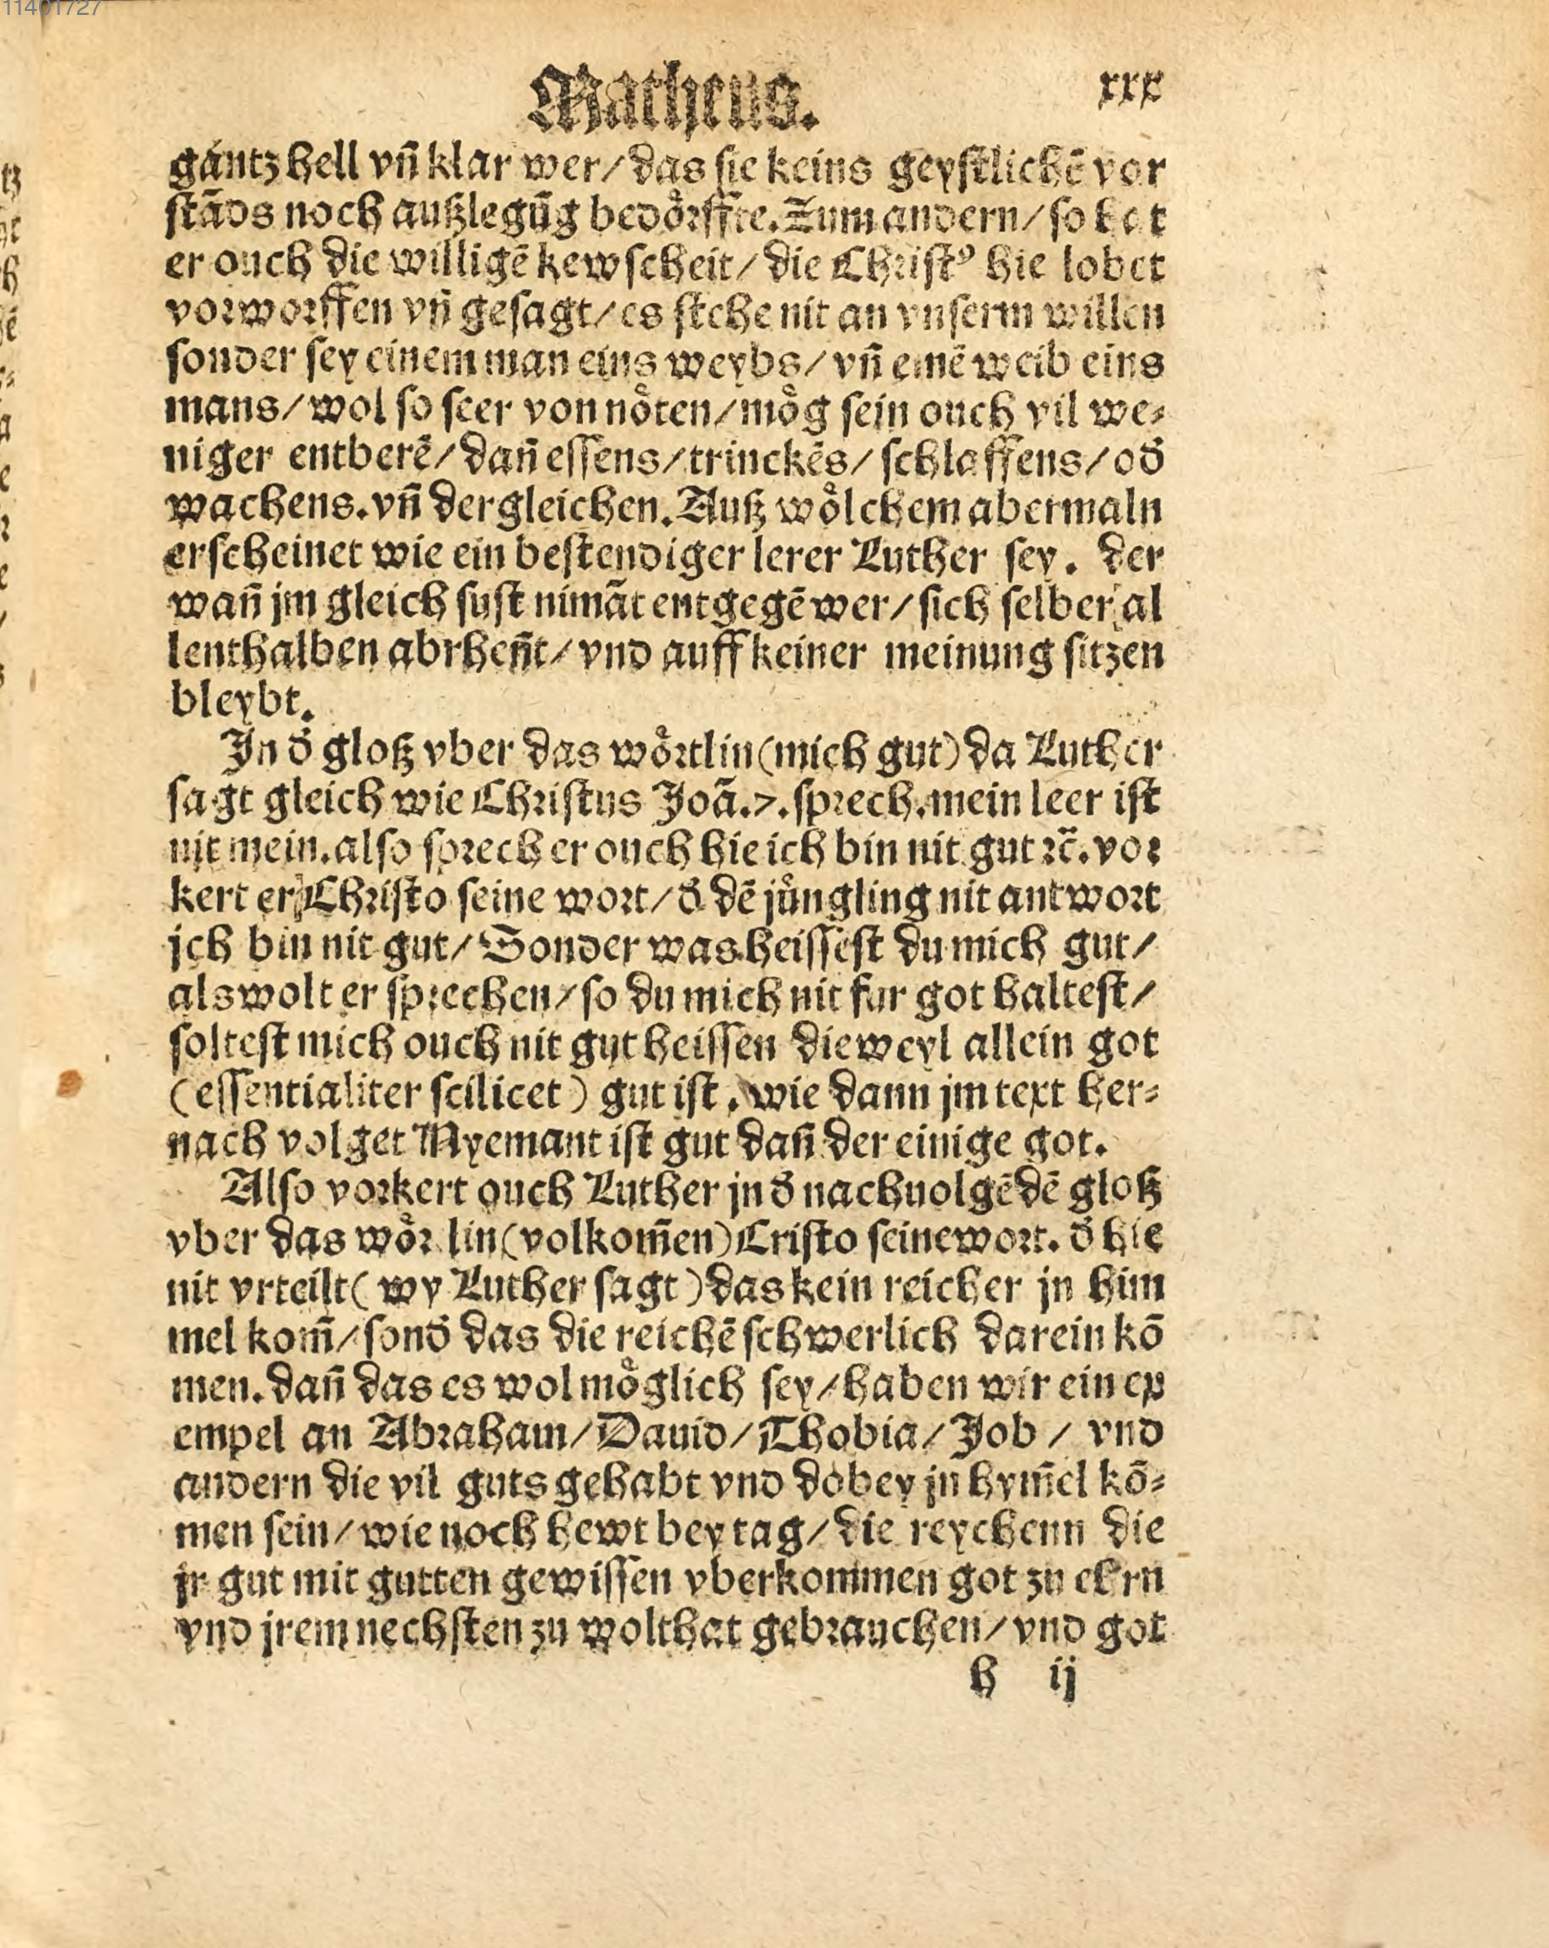 11401727
Matheus. xxx
gantz hell vñ klar wer/das sie keins geystlichẽ vor
stãds noch außlegũg bedoͤrffte. Zum andern/so hat
er ouch die willigẽ kewscheit/die Christꝰ hie lobet
vorworffen vñ gesagt/es stehe nit an vnserm willen
sonder sey einem man eins weybs/vñ einẽ weib eins
mans/wol so seer von noͤten/moͤg sein ouch vil we⸗
niger entberẽ/dañ essens/trinckẽs/schlaffens/od̃
wachens.vñ der gleichen. Auß woͤlchem abermaln
erscheinet wie ein bestendiger lerer Luther sey. der
wañ jm gleich sust nimãt entgegẽ wer/sich selber al
lenthalben abrheñt/vnd auff keiner meinung sitzen
bleybt.
In d̃ gloß vber das woͤrtlin(mich gut)da Luther
sagt gleich wie Christus Joã.7.sprech.mein leer ist
nit mein.also sprech er ouch hie ich bin nit gut ꝛc̃.vor
kert er Christo seine wort/d̃ dẽ juͤngling nit antwort
jch bin nit gut/Sonder was heissest du mich gut/
als wolt er sprechen/so du mich nit fur got haltest/
soltest mich ouch nit gut heissen dieweyl allein got
(essentialiter scilicet) gut ist. wie dann jm text her⸗
nach volget Nyemant ist gut dañ der einige got.
Also vorkert ouch Luther jn d̃ nachuolgẽdẽ gloß
vber das woͤr lin(volkom̃en)Cristo seine wort. d̃ hie
nit vrteilt( wy Luther sagt)das kein reicher jn him
mel kom̃/sond̃ das die reichẽ schwerlich darein kõ
men.dañ das es wol moͤglich sey/haben wir ein ex
empel an Abraham/Dauid/Thobia/Job / vnd
andern die vil guts gehabt vnd dobey jn hym̃el kõ⸗
men sein/wie noch hewt bey tag/die reychenn die
jr gut mit gutten gewissen vberkommen got zu ehrn
vnd jrem nechsten zu wolthat gebrauchen/vnd got
h ij